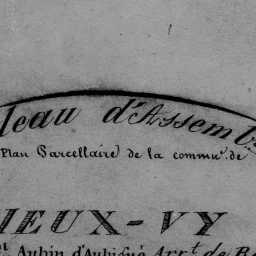 leau d'Assemb
Plan Parcellaire de la commu.e de
IEUX-VY
Aubin d'Aubigné Arr.t de